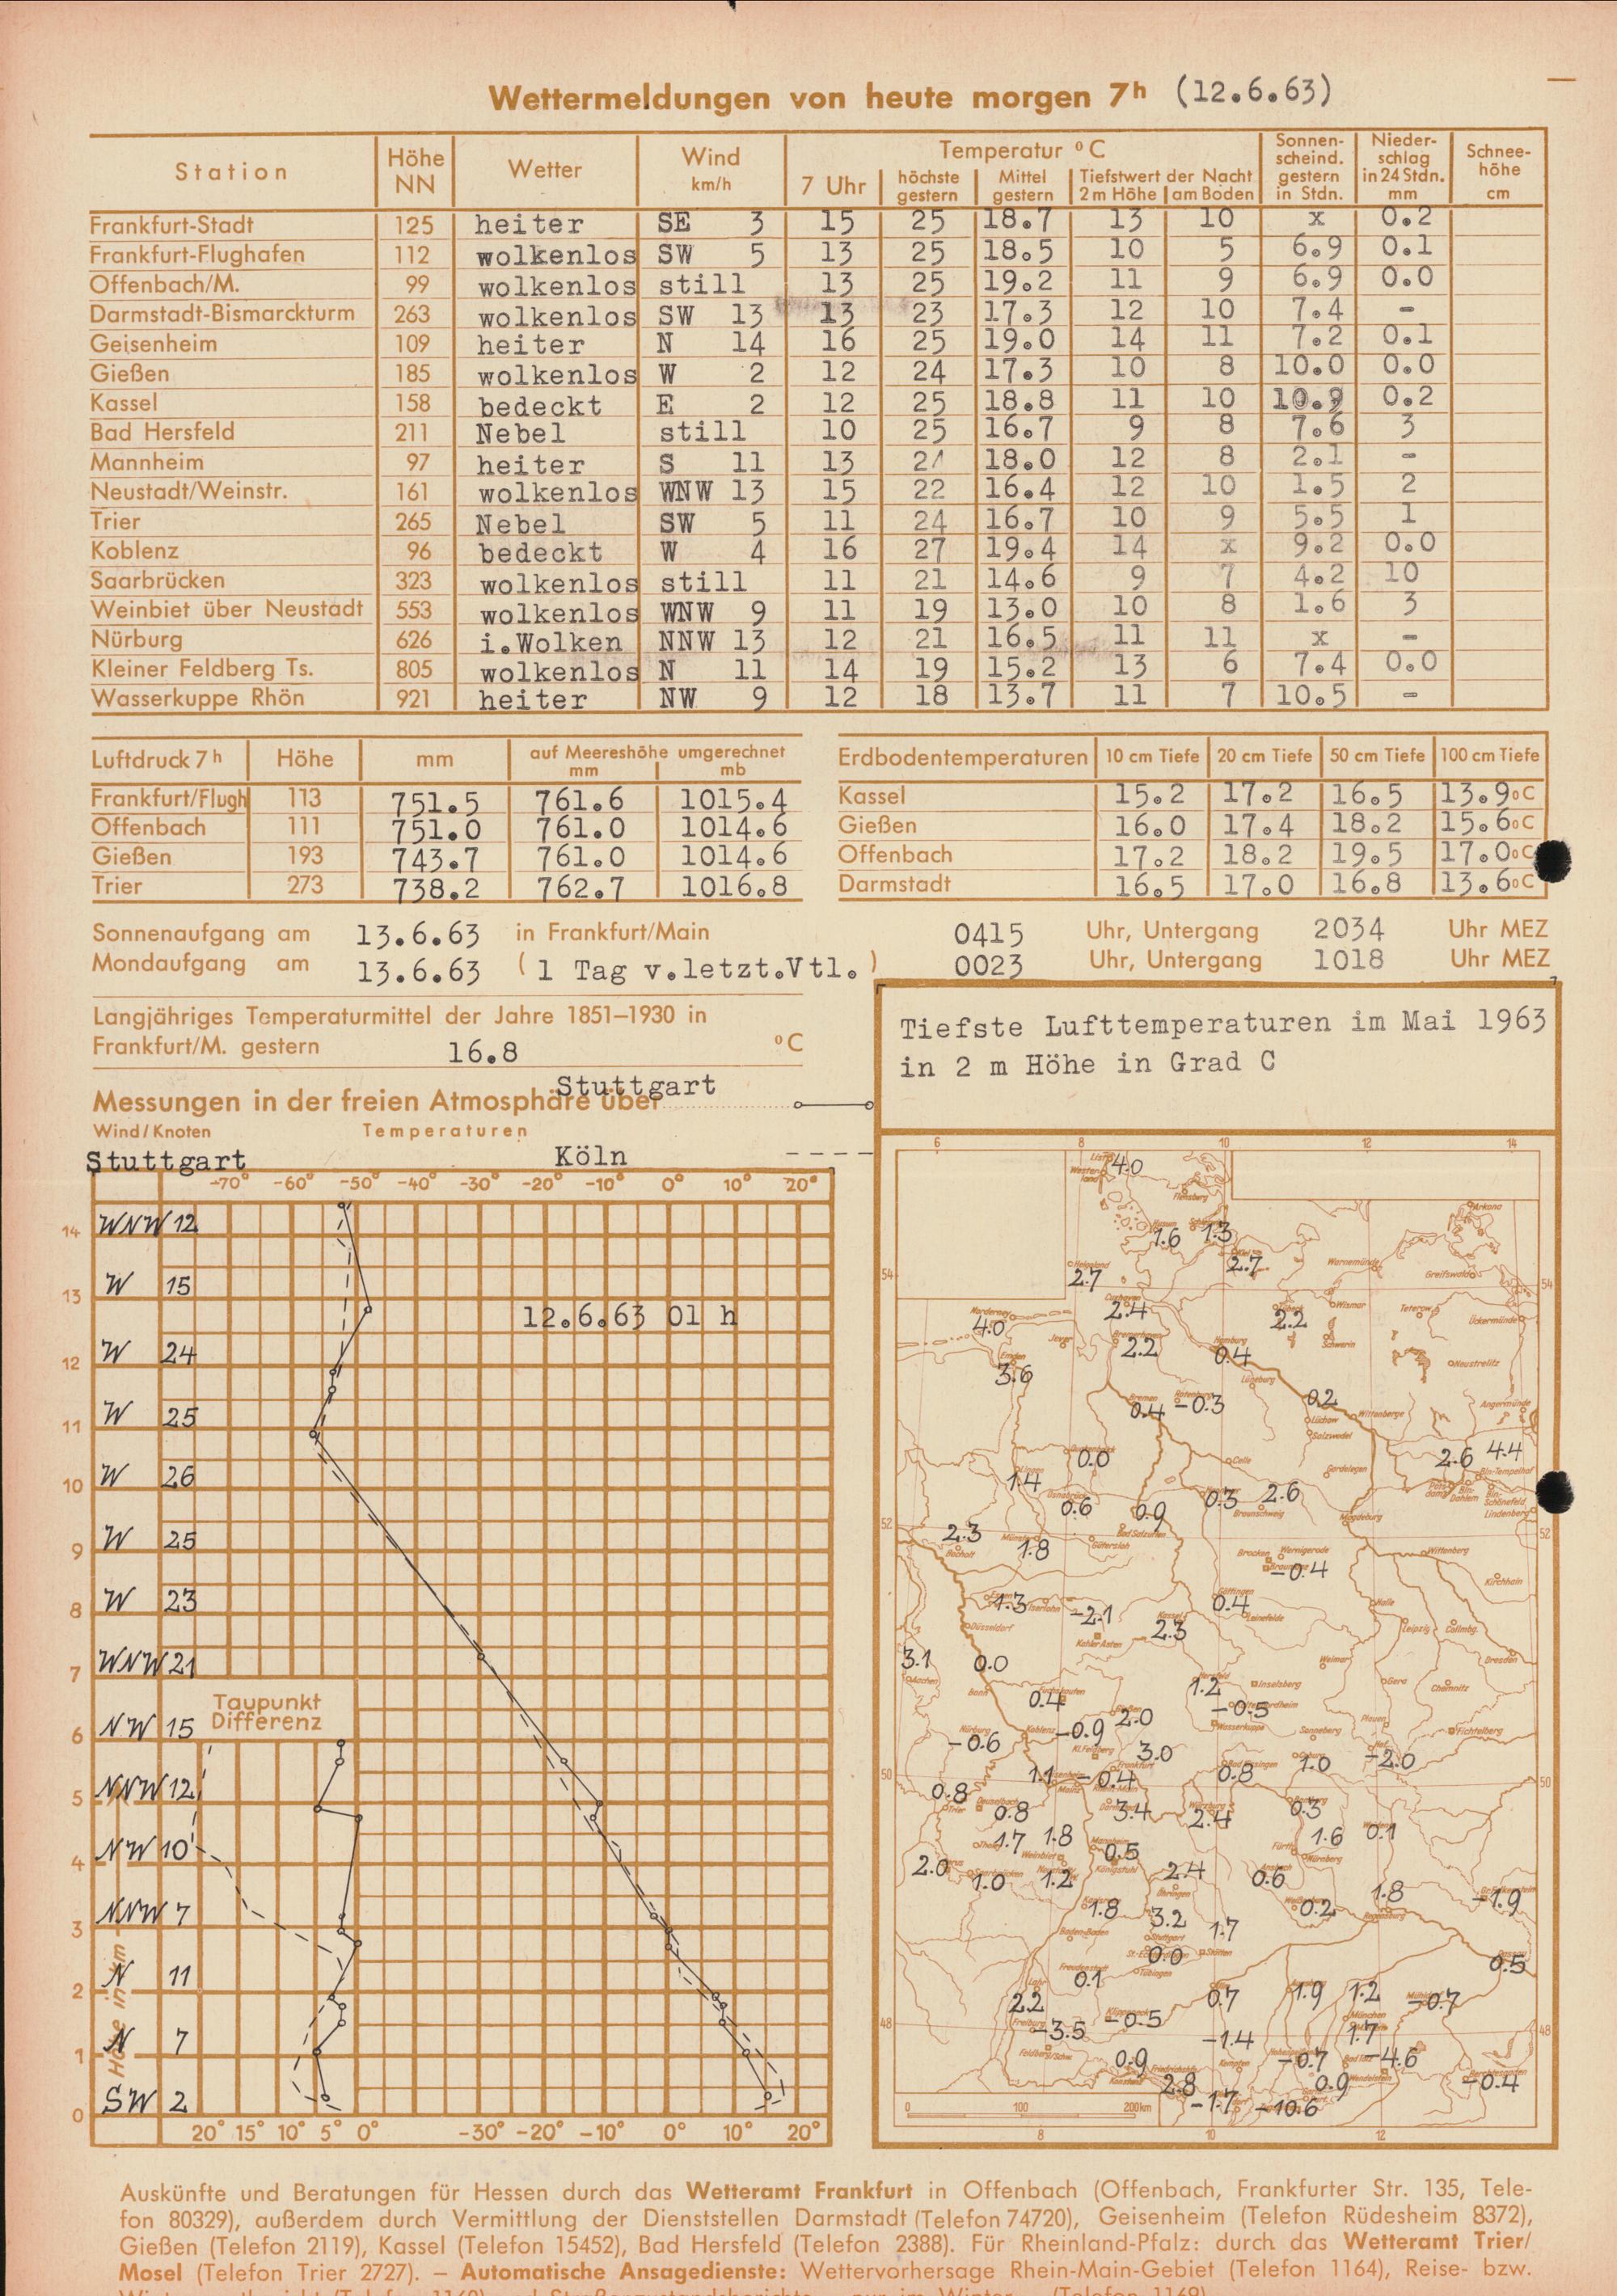 Wettermeldungen von heute morgen 7h (12.6.63)
Station Höhe NN Wetter Wind km/h Temperatur °C Sonnenscheind. gestern in Stdn. Niederschlag in 24 Stdn. mm Schneehöhe cm
7 Uhr höchste gestern Mittel gestern Tiefstwert der Nacht 2 m Höhe am Boden
Frankfurt-Stadt 125 heiter SE 3 15 25 18.7 13 10 x 0.2
Frankfurt-Flughafen 112 wolkenlos SW 5 13 25 18.5 10 5 6.9 0.1
Offenbach/M. 99 wolkenlos still 13 25 19.2 11 9 6.9 0.0
Darmstadt-Bismarckturm 263 wolkenlos SW 13 13 23 17.3 12 10 7.4 -
Geisenheim 109 heiter N 14 16 25 19.0 14 11 7.2 0.1
Gießen 185 wolkenlos W 2 12 24 17.3 10 8 10.0 0.0
Kassel 158 bedeckt E 2 12 25 18.8 11 10 10.9 0.2
Bad Hersfeld 211 Nebel still 10 25 16.7 9 8 7.6 3
Mannheim 97 heiter S 11 13 18.0 12 8 2.1 -
Neustadt/Weinstr. 161 wolkenlos WNW 13 15 22 16.4 12 10 1.5 2
Trier 265 Nebel SW 5 11 24 16.7 10 9 5.5 1
Koblenz 96 bedeckt W 4 16 27 19.4 14 x 9.2 0.0
Saarbrücken 323 wolkenlos still 11 21 14.6 9 7 4.2 10
Weinbiet über Neustadt 553 wolkenlos WNW 9 11 19 13.0 10 8 1.6 3
Nürburg 626 i.Wolken NNW 13 12 21 16.5 11 11 x -
Kleiner Feldberg Ts. 805 wolkenlos N 11 14 19 15.2 13 6 7.4 0.0
Wasserkuppe Rhön 921 heiter NW 9 12 18 13.7 11 7 10.5 -
Luftdruck 7h Höhe mm auf Meereshöhe umgerechnet mm mb
Frankfurt/Flugh 113 751.5 761.6 1015.4
Offenbach 111 751.0 761.0 1014.6
Gießen 193 743.7 761.0 1014.6
Trier 273 738.2 762.7 1016.8
Erdbodentemperaturen 10 cm Tiefe 20 cm Tiefe 50 cm Tiefe 100 cm Tiefe
Kassel 15.2 17.2 16.5 13.9°C
Gießen 16.0 17.4 18.2 15.6°C
Offenbach 17.2 18.2 19.5 17.0°C
Darmstadt 16.5 17.0 16.8 13.6°C
Sonnenaufgang am 13.6.63 in Frankfurt/Main 0415 Uhr, Untergang 2034 Uhr MEZ
Mondaufgang am 13.6.63 (1 Tag v.letzt.Vtl.) 0023 Uhr, Untergang 1018 Uhr MEZ
Langjähriges Temperaturmittel der Jahre 1851–1930 in
Frankfurt/M. gestern 16.8 °C
Messungen in der freien Atmosphäre über Stuttgart
Wind/Knoten Temperaturen
Stuttgart Köln
-70° -60° -50° -40° -30° -20° -10° 0° 10° 20°
14 WNW 12
W 15
13
12.6.63 01 h
12 W 24
W 25
11
10 W 26
W 25
9
8 W 23
7 WNW 21
Taupunkt
Differenz
NW 15
6
5 NNW 12
NW 10
4
3 NNW 7
N 11
2
1 N 7
SW 2
0
Höhe in km
20° 15° 10° 5° 0° -30° -20° -10° 0° 10° 20°
Tiefste Lufttemperaturen im Mai 1963
in 2 m Höhe in Grad C
6 8 10 12 14
4.0
1.6 1.3
2.7 2.7
54 54
2.4 2.2
4.0
2.2 0.4
3.6
0.4 -0.3 0.2
0.0 2.6 4.4
1.4
0.6 0.9 0.3 2.6
52 52
2.3 1.8
-0.4
1.3 -2.1 0.4
2.3
3.1 0.0
0.4 1.2 -0.5
-0.6 -0.9 2.0
3.0 1.0 -2.0
50 1.1 -0.4 0.8 50
0.8 0.8 3.4 2.4 0.3
1.7 1.8 0.5 1.6 0.1
2.0 1.0 1.2 2.4 0.6
1.8 3.2 1.7 0.2 1.8 -1.9
0.0
0.1 0.5
2.2 0.7 1.9 1.2 -0.7
48 -3.5 -0.5 -1.4 1.7 48
0.9 -0.7 -4.6
2.8 0.9 -0.4
-1.7 -10.6
0 100 200km
8 10 12
Auskünfte und Beratungen für Hessen durch das Wetteramt Frankfurt in Offenbach (Offenbach, Frankfurter Str. 135, Tele-
fon 80329), außerdem durch Vermittlung der Dienststellen Darmstadt (Telefon 74720), Geisenheim (Telefon Rüdesheim 8372),
Gießen (Telefon 2119), Kassel (Telefon 15452), Bad Hersfeld (Telefon 2388). Für Rheinland-Pfalz: durch das Wetteramt Trier/
Mosel (Telefon Trier 2727). – Automatische Ansagedienste: Wettervorhersage Rhein-Main-Gebiet (Telefon 1164), Reise- bzw.